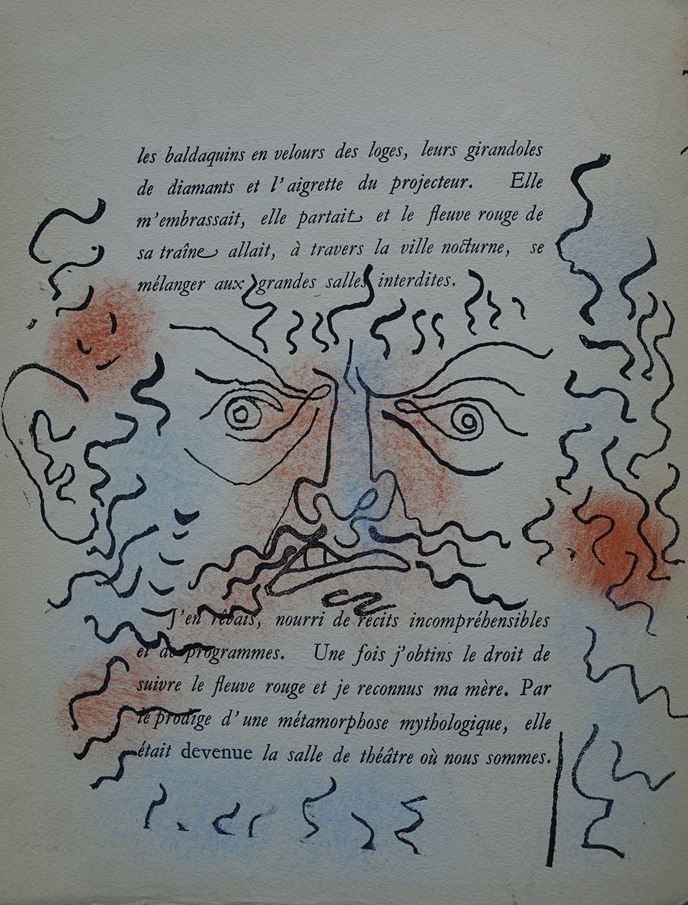 les baldaquins en velours des loges, leurs girandoles
de diamants et l'aigrette du projecteur. Elle
m'embrassait, elle partait et le fleuve rouge de
sa traîne allait, à travers la ville nocturne, se
mélanger aux grandes salles interdites.
J'en rêvais, nourri de récits incompréhensibles
et de programmes. Une fois j'obtins le droit de
suivre le fleuve rouge et je reconnus ma mère. Par
le prodige d'une métamorphose mythologique, elle
était devenue la salle de théâtre où nous sommes.